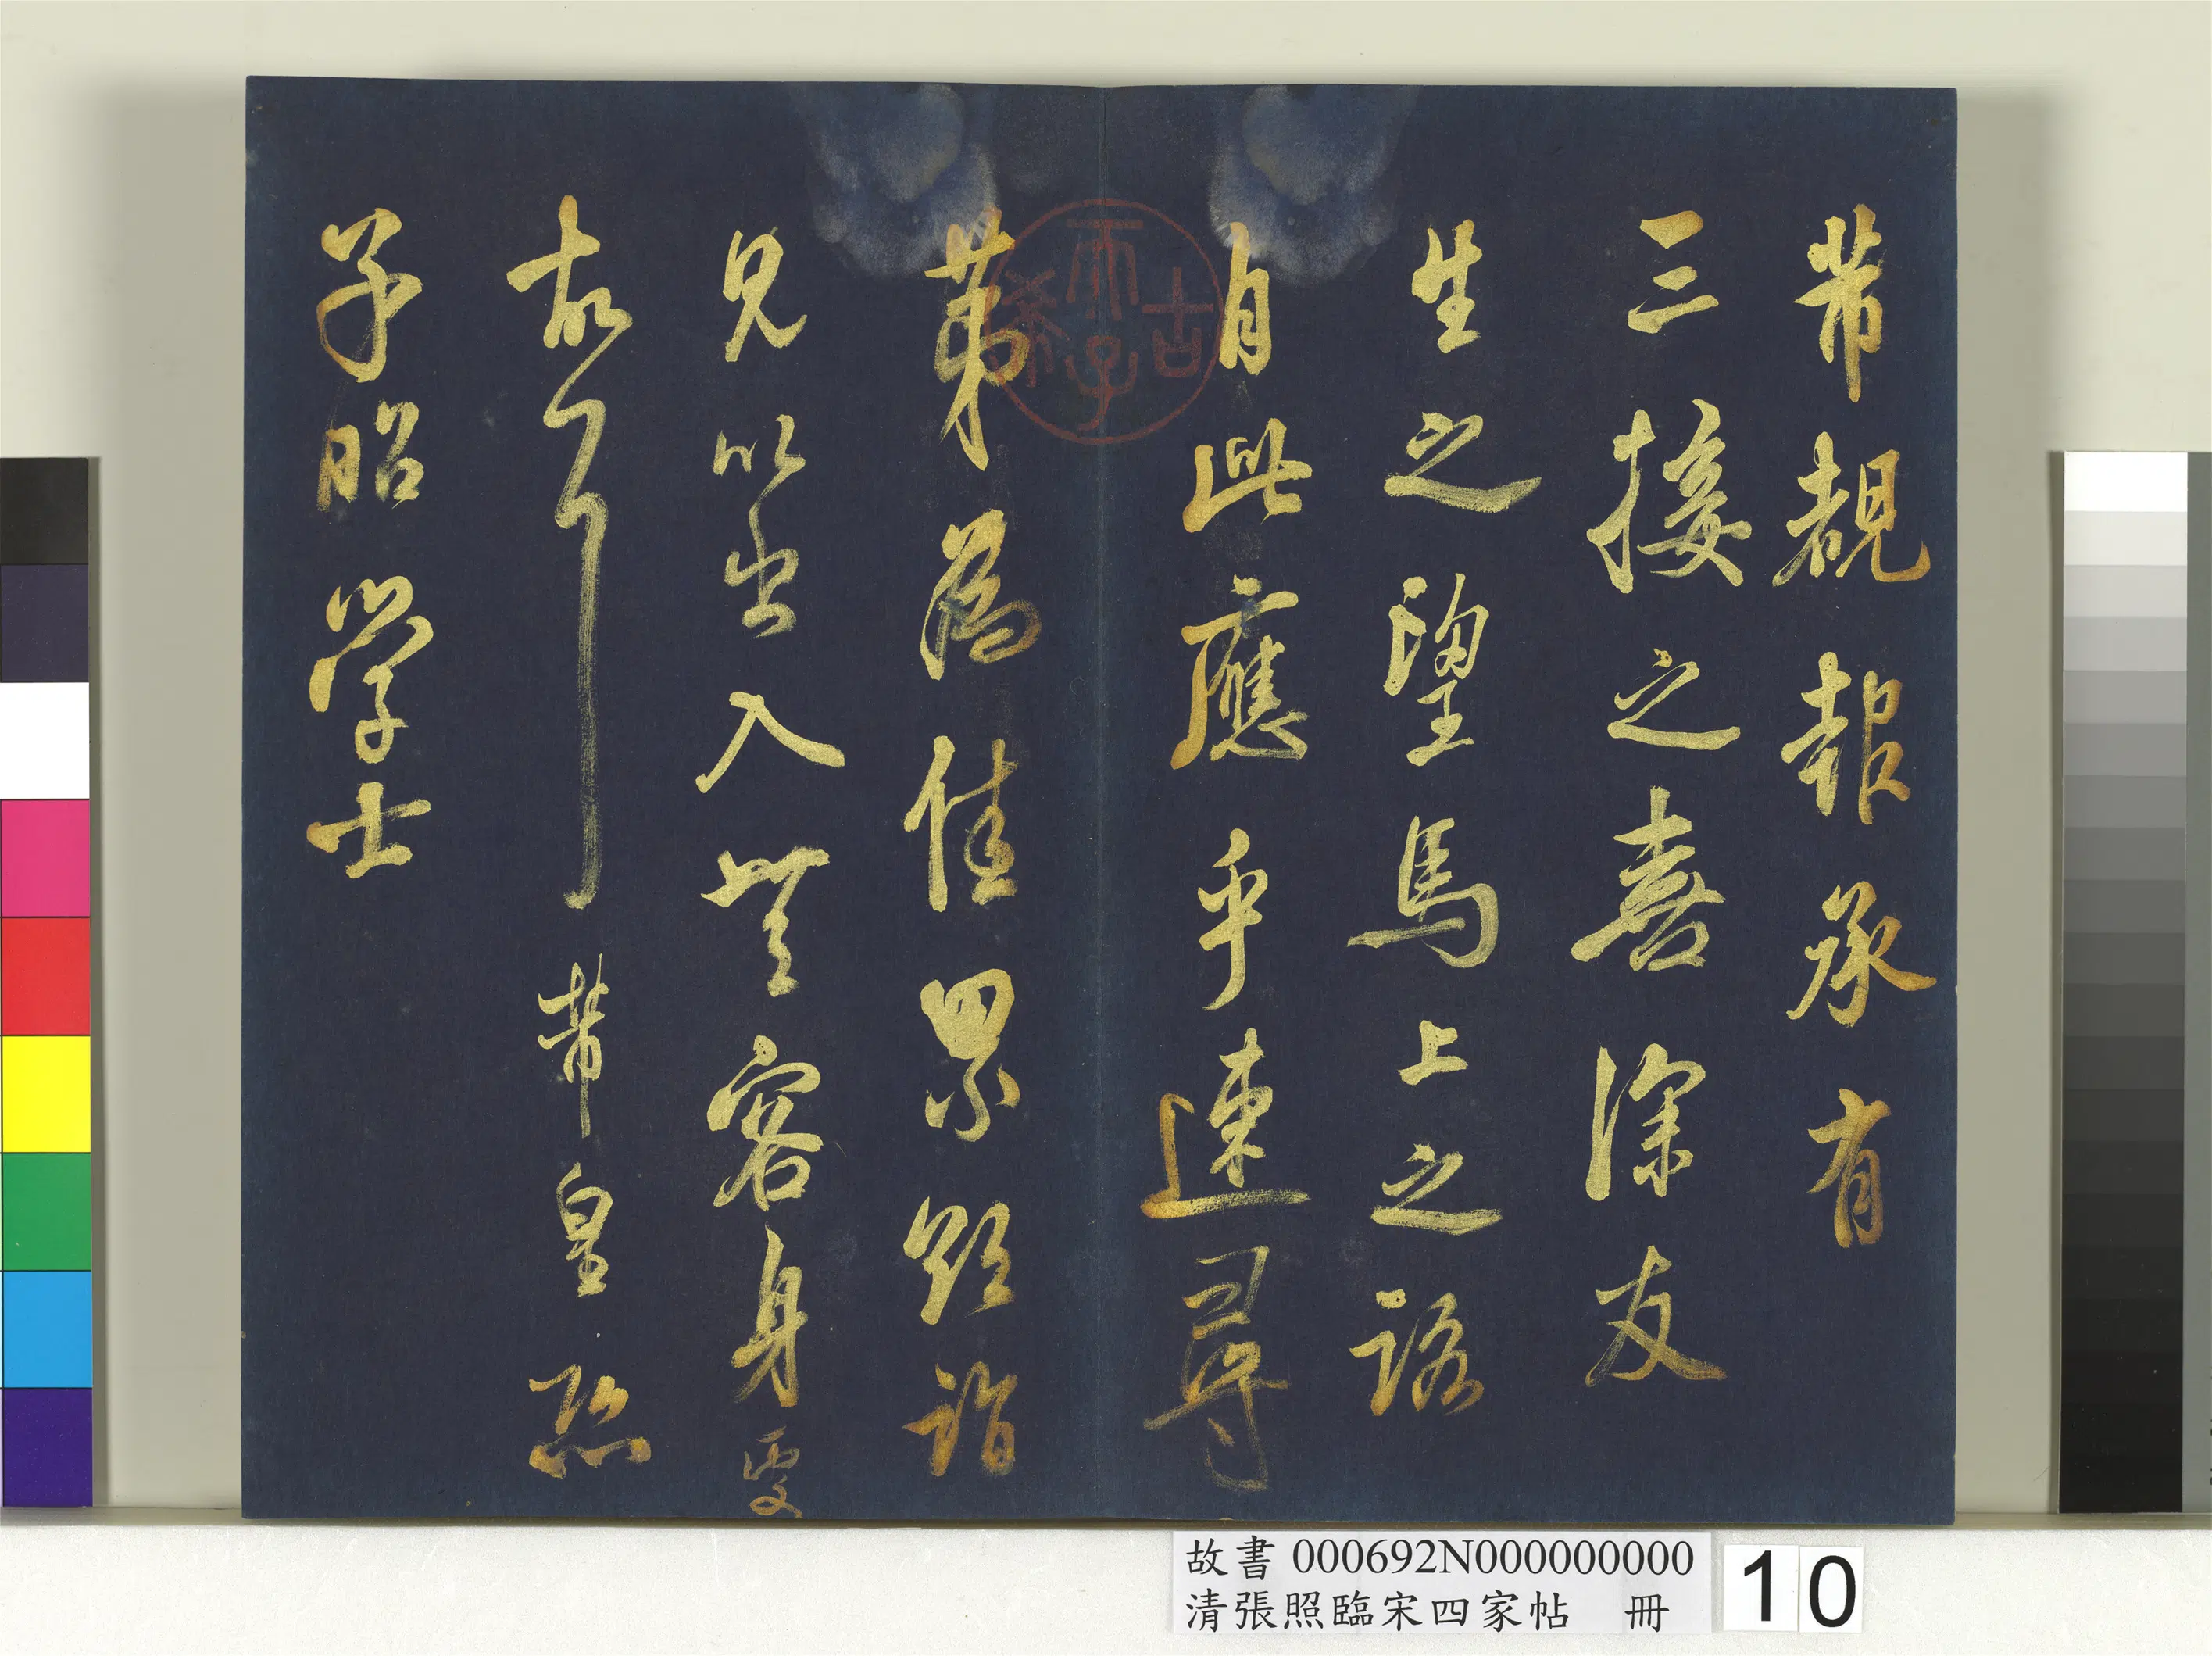 芾覩報承有
三接之喜深友
生之望馬上之諾
自此應乎速尋
第為佳累跽詣
兄以出入無容身
故耳芾皇恐
子昭学士
故書 000692N000000000
清張照臨宋四家帖 冊
10